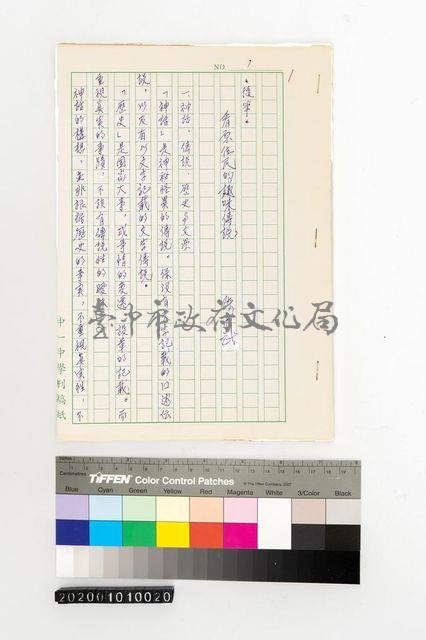 NO. 1
·復筆·
看原住民的趣味傳說
一、神話、傳說、歷史与文學
「神話」是神粉怪異的傳說。係沒有
記載的口述伝
說，以及有以文字記載的文学傳說。
「歷史」是國家大事，或事情的
的記載。而
重視真實的事蹟，不談有傳說性的
神話的構想，並非根據歷史的事実，不重視真実性，不
中一中學刊稿紙
臺中市政府文化局
Inches
Centimetres
TIFFEN Color Control Patches
© The Tiffen Company, 2007
Blue Cyan Green Yellow Red Magenta White 3/Color Black
202001010020